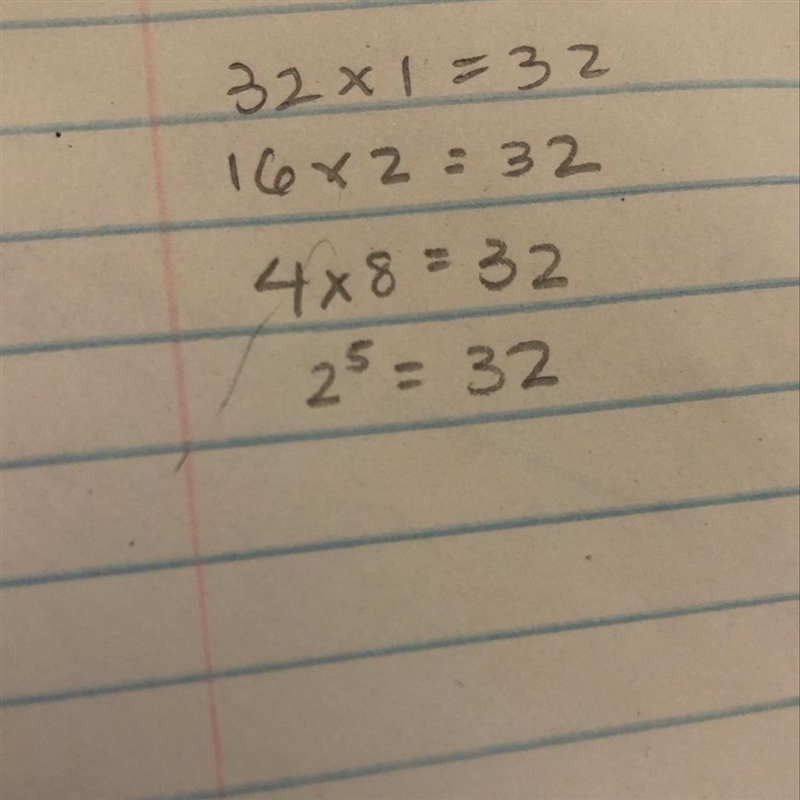 32 × 1 = 32
16 × 2 = 32
4 × 8 = 32
2⁵ = 32